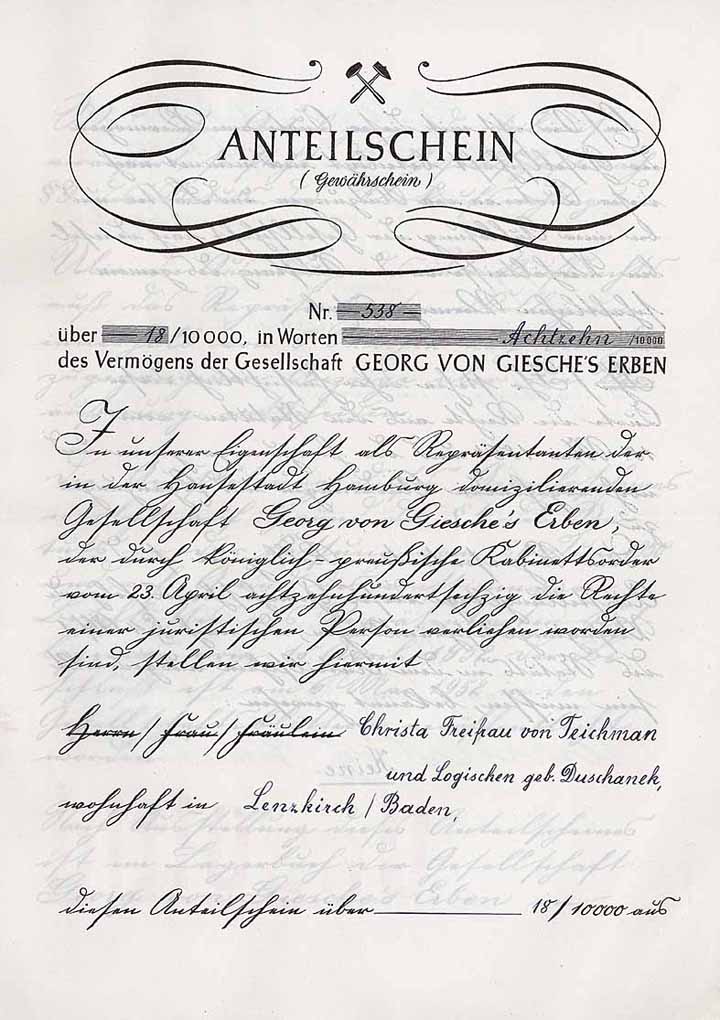 ANTEILSCHEIN
( Gewährschein )
Nr. 538
über 18/10000, in Worten Achtzehn /10000
des Vermögens der Gesellschaft GEORG VON GIESCHE'S ERBEN
In unserer Eigenschaft als Repräsentanten der
in der Hansestadt Hamburg domizilierenden
Gesellschaft Georg von Giesche's Erben,
der durch königlich-preußische Kabinettsorder
vom 23. April achtzehnhundertsechzig die Rechte
einer juristischen Person verliehen worden
sind, stellen wir hiermit
Herrn / Frau / Fräulein Christa Freifrau von Teichman
und Logischen geb. Duschanek,
wohnhaft in Lenzkirch / Baden,
diesen Anteilschein über 18/10000 aus